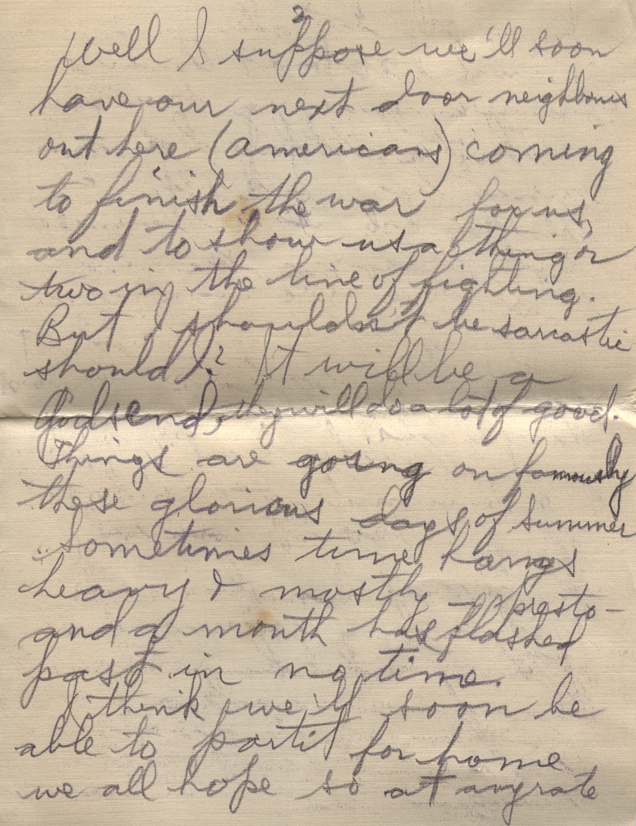 2
Well I suppose we'll soon
have our next door neighbours
out here (americans) coming
to finish the war for us,
and to show us a thing or
two in the line of fighting.
But I shouldn't be sarcastic
should I? It will be a
Godsend, they will do a lot of good.
Things are going on famously
these glorious days of summer
sometimes time hangs
heavy & mostly - presto -
and a month has flashed
past in no time.
I think we'll soon be
able to partit for home
we all hope so at anyrate